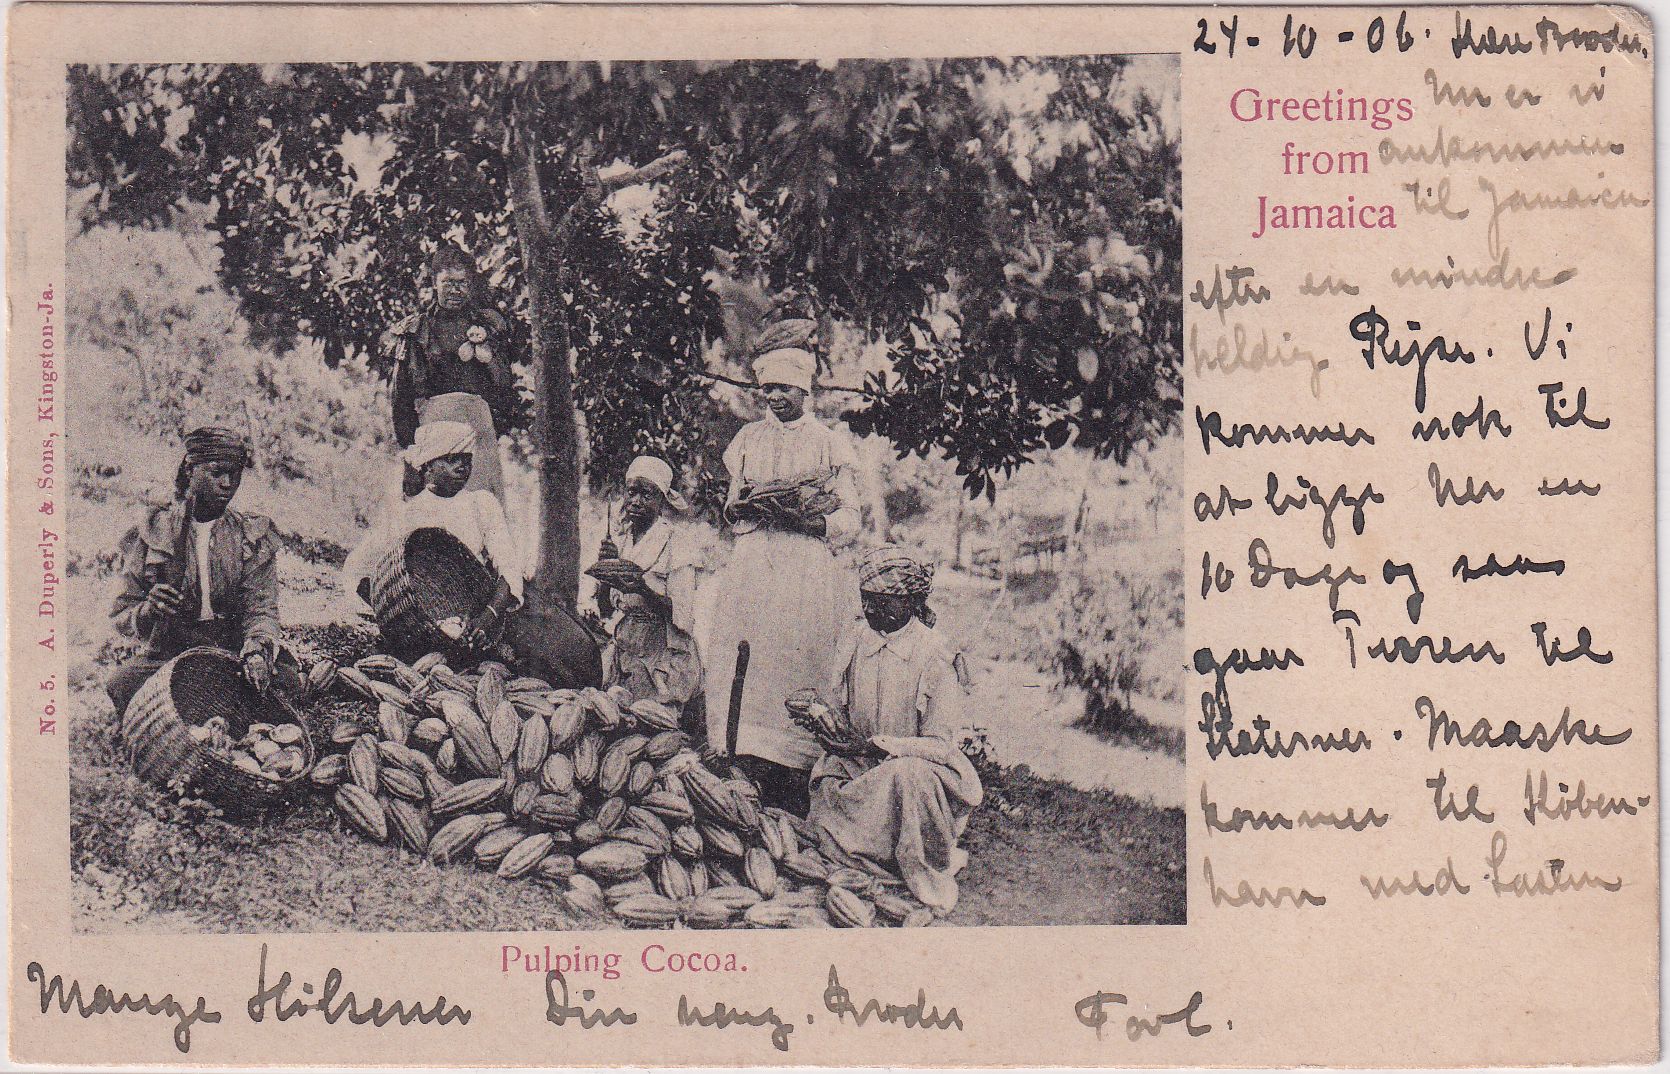 24-10-06. Kære Broder.
Greetings
from
Jamaica
Nu er vi
ankommen
til Jamaica
efter en mindre
heldig Rejse. Vi
kommer nok til
at ligge her en
10 Dage og saa
gaar Turen til
Staterner. Maaske
kommer til Köben-
havn med Lasten
No. 5. A. Duperly & Sons, Kingston-Ja.
Pulping Cocoa.
Mange Hilsener Din heng. Broder